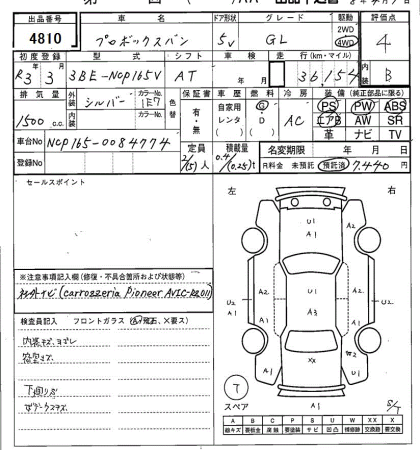 出品番号 車名 ドア形状 グレード 駆動 評価点
4810 プロボックスバン 5v GL 2WD 4WD 4
初度登録 型式 シフト 車検 走行(km・マイル) 内装
R3年3月 3BE-NCP165V AT 年 月 36,154 B
排気量 外装 シルバー カラーNo. 1E7 色替 保証書 車歴 燃料 冷房 装備(純正部品に限る)
1500 c.c. 内装 カラーNo. 有・無 自家用 レンタ G D AC PS PW ABS
エアB AW SR
革 ナビ TV
車台No NCP165-0084774 定員 2/(5)人 積載量 0.4/(0.25)t 名変期限 年 月 日
登録No R料金 未預託 預託済 7,440円
セールスポイント
左 右
U1
A1
A1
A2 A2
U2 U2
U1
A3
A2 A2
XX W2
A1 A1 U1
A1
※注意事項記入欄(修復・不具合箇所および状態等)
(carrozzeria Pioneer
検査員記入 フロントガラス (A飛石、X要ス)
内装キズ、ヨゴレ
下廻りサビ
T
スペア
S/T
A B C P S U W X XX
線キズ 要板金 腐触 要塗装 サビ 凹凸 補修跡 要交換 交換跡